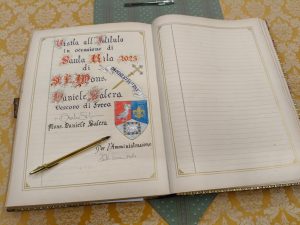 Visita all'Istituto
in occasione di
Santa Rita 2025
di
S.E. Mons.
Daniele Salera
Vescovo di Ivrea
Mons. Daniele Salera
Per l'Amministrazione